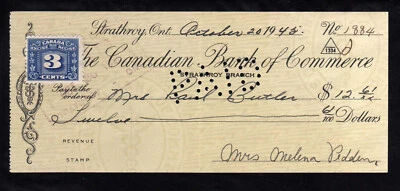 Strathroy, Ont. October 20 1945. No 1884
CANADA
EXCISE
3
CENTS
The Canadian Bank of Commerce
STRATHROY BRANCH
PAID
Pay to the order of Mrs Butler $ 12 61/xx
Twelve 61/100 Dollars
REVENUE
STAMP
Mrs Melena